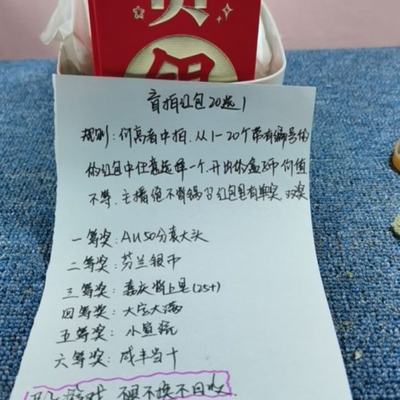 盲拍红包20选1
规则：价高者中拍，从1-20个带有编号的
的红包中任意选择一个，开出的金送币价值
不等，主播绝不背锅 红包里有单奖，双奖
一等奖：AU50分袁大头
二等奖：芬兰银币
三等奖：嘉庆背上星(25+)
四等奖：大定大满
五等奖：小熊猫
六等奖：咸丰当十
游戏 不退不换不回收